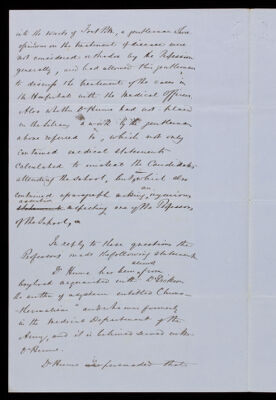 into the wards of Fort Pitt, a gentleman whose
opinions on the treatment of disease were
not considered orthodox by the Profession
generally, and had allowed this gentleman
to discuss the treatment of the cases in
the Hospital with the Medical Officers
Also whether Dr Hume had not placed
in the Library a work by the gentleman
above referred to, which not only
contained medical statements
calculated to mislead the Candidates
attending the School, but which also
contained a paragraph making an injurious
assertion
respecting one of the Professors
of the School,
In reply to these questions the
Professors made the following statement
Dr Hume has been from
almost
boyhood acquainted with Dr Dickson
the author of a system entitled Chrono
Thermalism" and who was formerly
in the Medical Department of the
Army, and it is believed served with
Dr Hume.
Dr Hume persuaded that